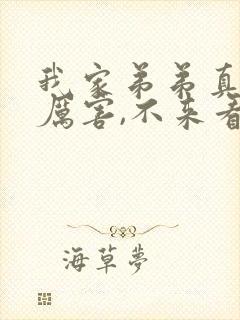 我家弟弟真
厲害,不来看
海草夢